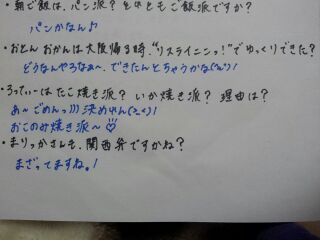 ・朝ご飯は、パン派？それともご飯派ですか？
パンかなん♪
・おとん おかんは大阪帰る時、"リスライニンっ！"でゆっくりできた？
どうなんやろなぁ〜、できたんとちゃうかな(^ω^)！
・ろってぃーはたこ焼き派？いか焼き派？理由は？
あ〜ごめんっ)))決めれん(>_<)！
おこのみ焼き派〜♡
・まりっかさんも、関西弁ですかね？
まざってますね。！